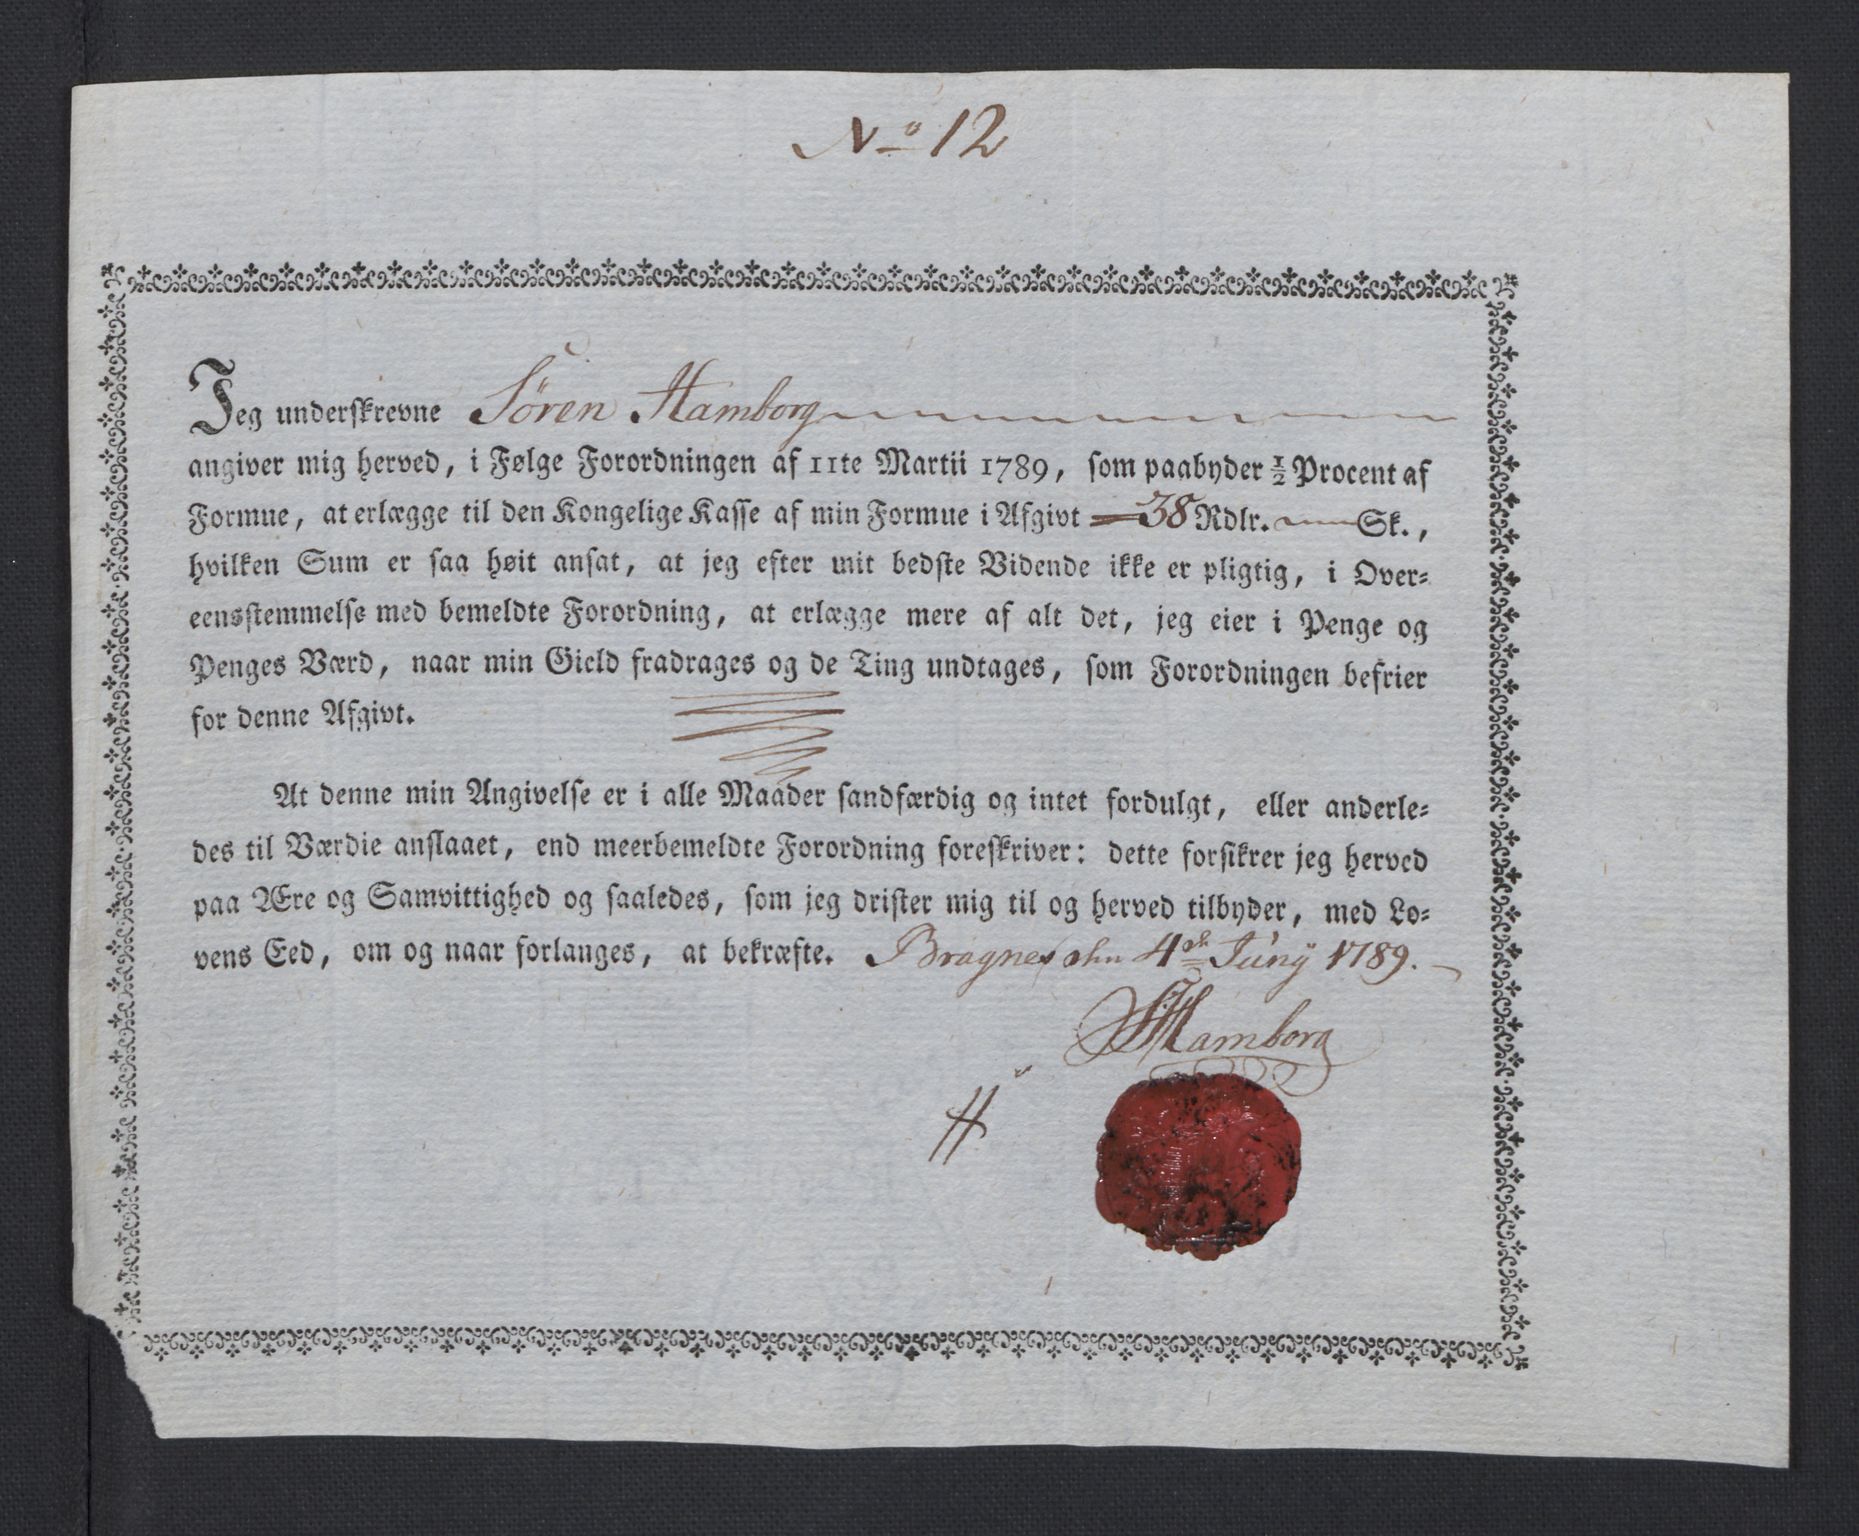 No 12
Jeg underskrevne Sören Hamborg
angiver mig herved, i Følge Forordningen af 11te Martii 1789, som paabyder ½ Procent af
Formue, at erlægge til den Kongelige Kasse af min Formue i Afgivt 38 Rdlr. Sk.,
hvilken Sum er saa høit ansat, at jeg efter mit bedste Vidende ikke er pligtig, i Over-
eensstemmelse med bemeldte Forordning, at erlægge mere af alt det, jeg eier i Penge og
Penges Værd, naar min Gield fradrages og de Ting undtages, som Forordningen befrier
for denne Afgivt.
At denne min Angivelse er i alle Maader sandfærdig og intet fordulgt, eller anderle-
des til Værdie anslaaet, end meerbemeldte Forordning foreskriver: dette forsikrer jeg herved
paa Ære og Samvittighed og saaledes, som jeg drister mig til og herved tilbyder, med Lo-
vens Eed, om og naar forlanges, at bekræfte. Bragnes 4de Juny 1789.
SHamborg